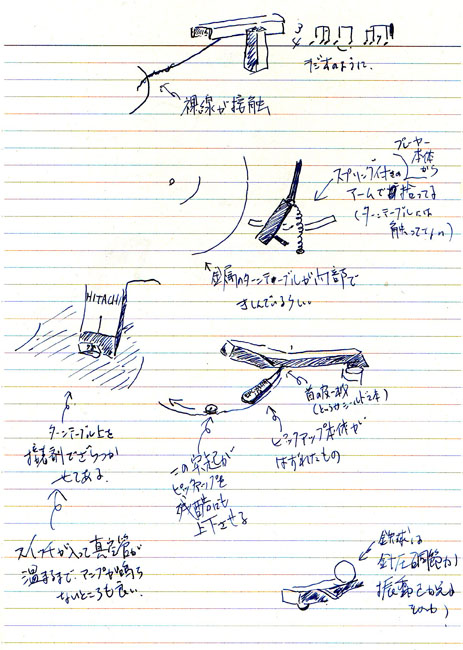 3
4
ラジオのように.
裸線が接触
プレーヤー
本体
から
スプリング付きの
アームで拾ってる
(ターンテーブルには
触ってない)
金属のターンテーブルが内部で
きしんでいるらしい。
HITACHI
ターンテーブル上を
接着剤でざらつか
せてある.
首の皮一枚
(というかシールド1本)
ピックアップ本体が
はずれたもの
この突起が
ピックアップを
残酷にも
上下させる
スイッチが入って真空管が
温まるまで、アンプが鳴ら
ないところも良い.
鉄球は
針圧調節か
振動を